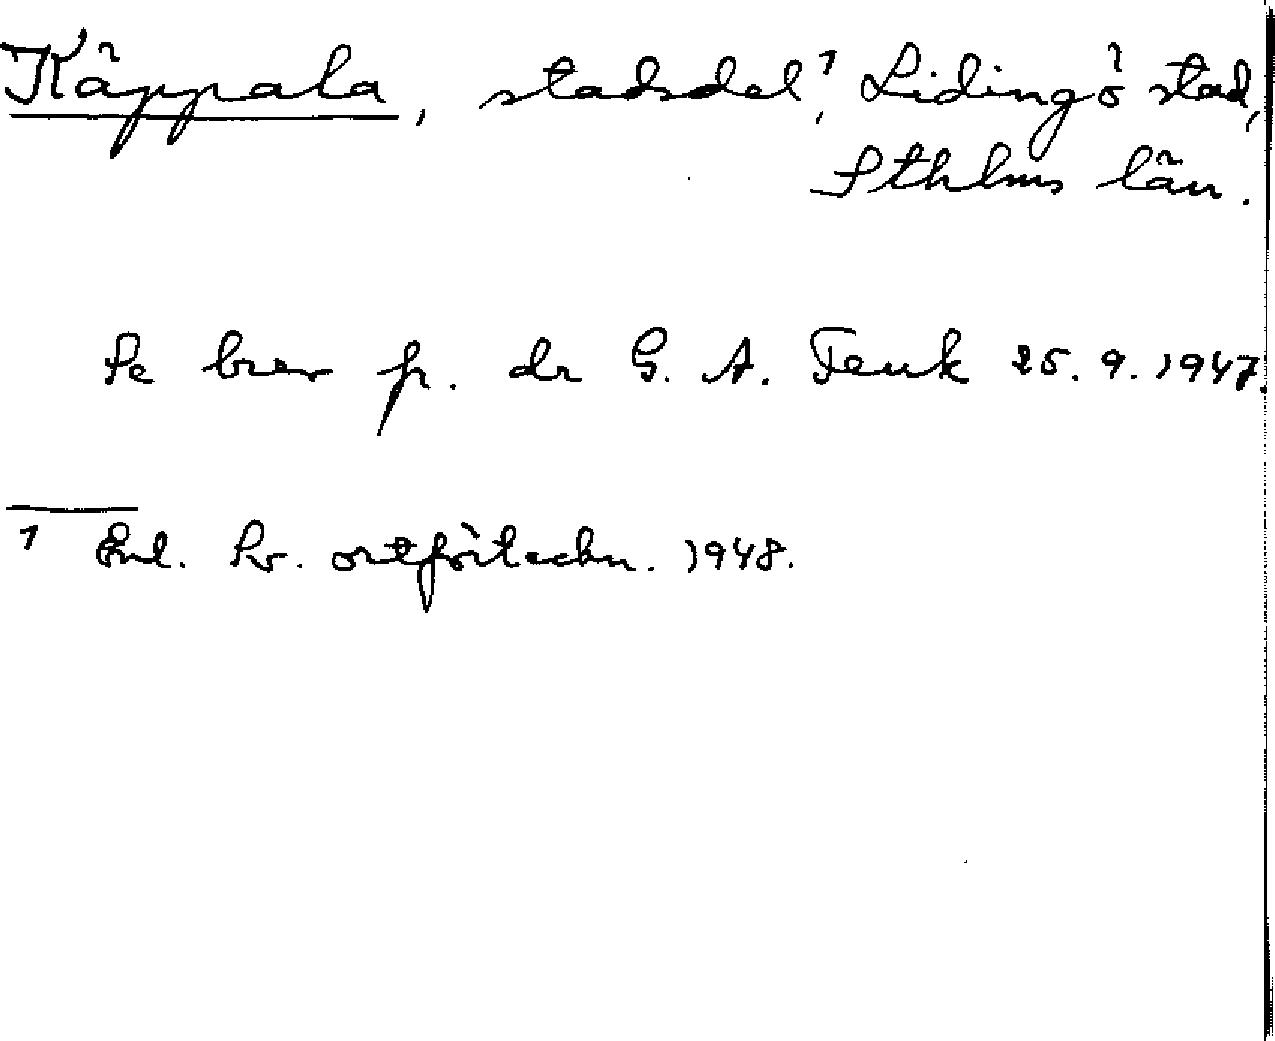 Käppala, stadsdel¹, Lidingö stad,
Sthlms län.
Se brev fr. dr G. A. Tenk 25.9.1947.
¹ Enl. Sv. ortförteckn. 1948.